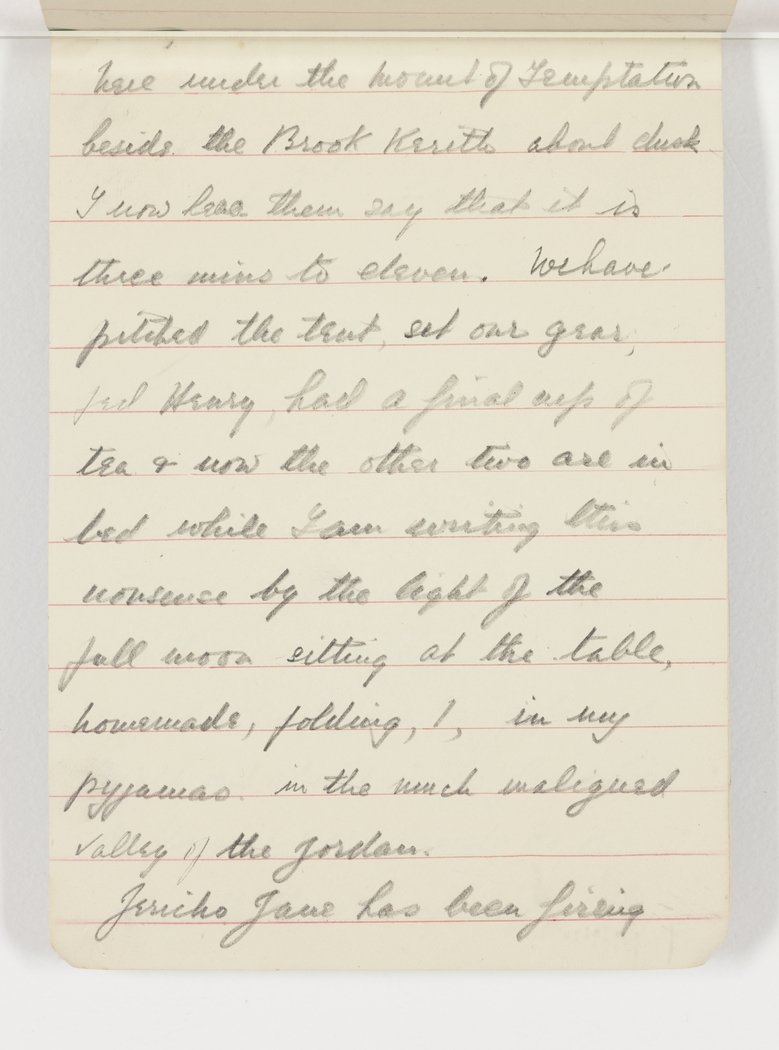 here under the mount of Temptation
beside the Brook Kerith about dusk
I now hear them say that it is
three mins to eleven. We have
pitched the tent, set our gear,
fed Henry, had a final cup of
tea & now the other two are in
bed while I am writing this
nonsense by the light of the
full moon sitting at the table,
homemade, folding, 1, in my
pyjamas in the much maligned
valley of the Jordan.
Jericho Jane has been firing